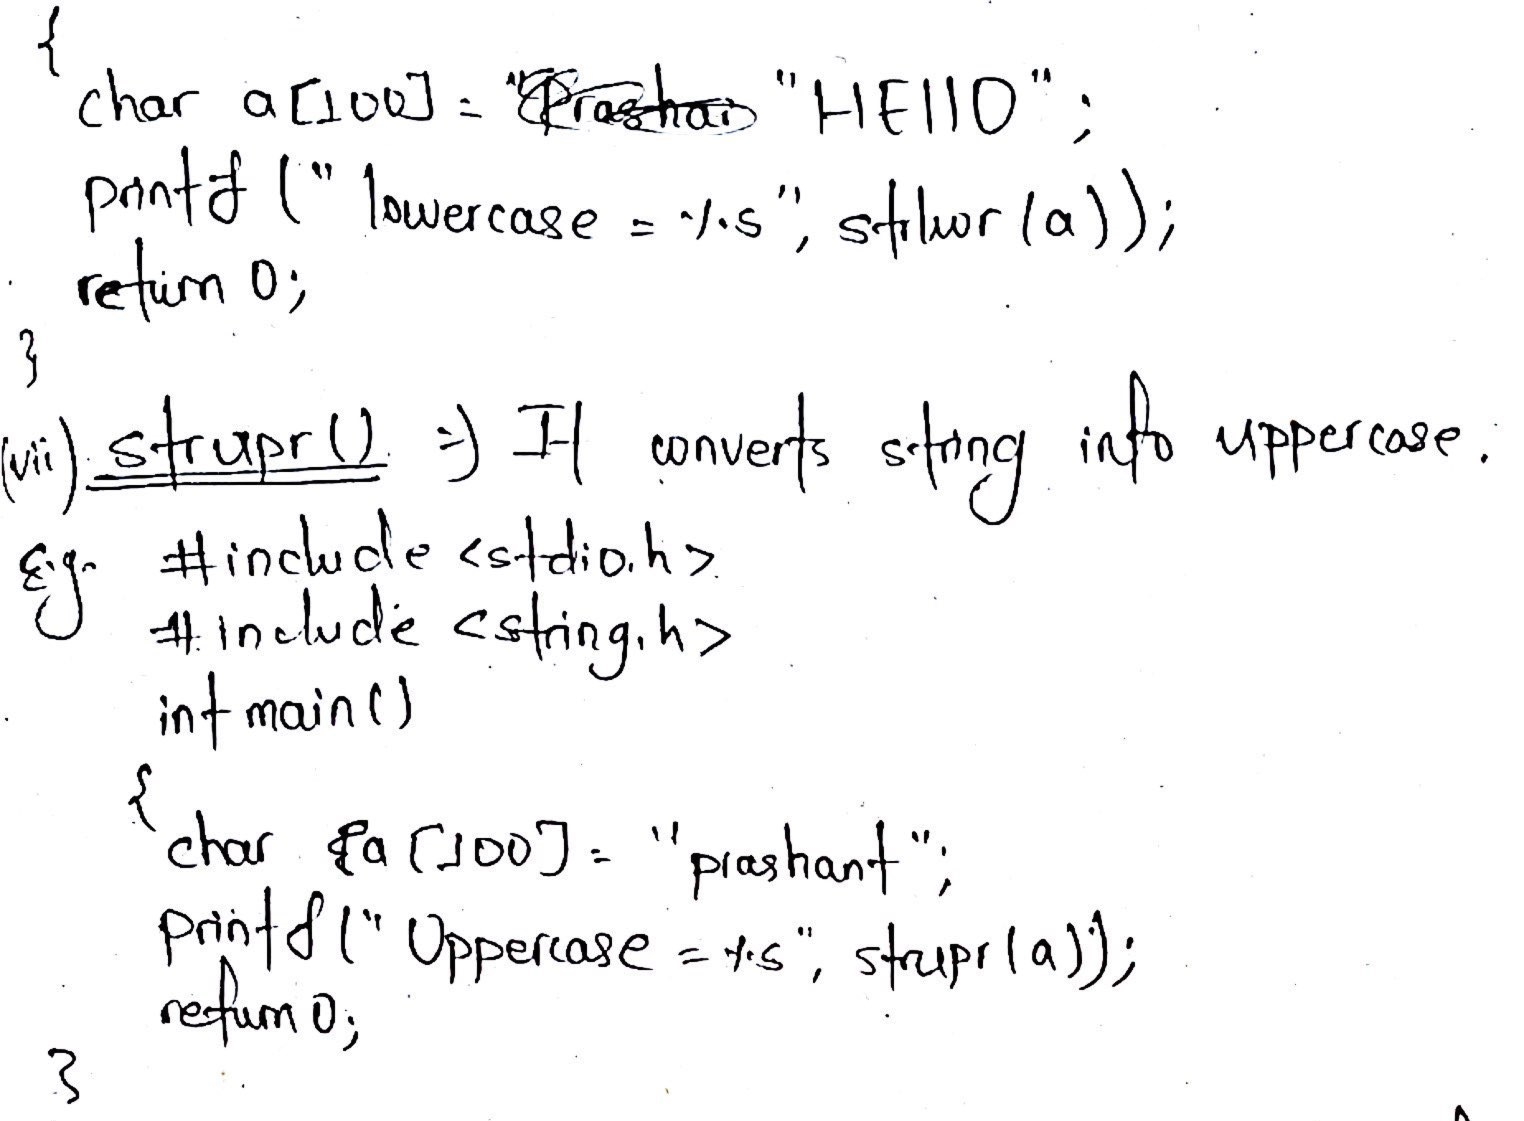 {
char a[100] = "HEllO";
printf ("lowercase = %s", strlwr(a));
return 0;
}
(vii) strupr() => It converts string into uppercase.
E.g. #include <stdio.h>
#include <string.h>
int main()
{
char a[100] = "prashant";
printf("Uppercase = %s", strupr(a));
return 0;
}